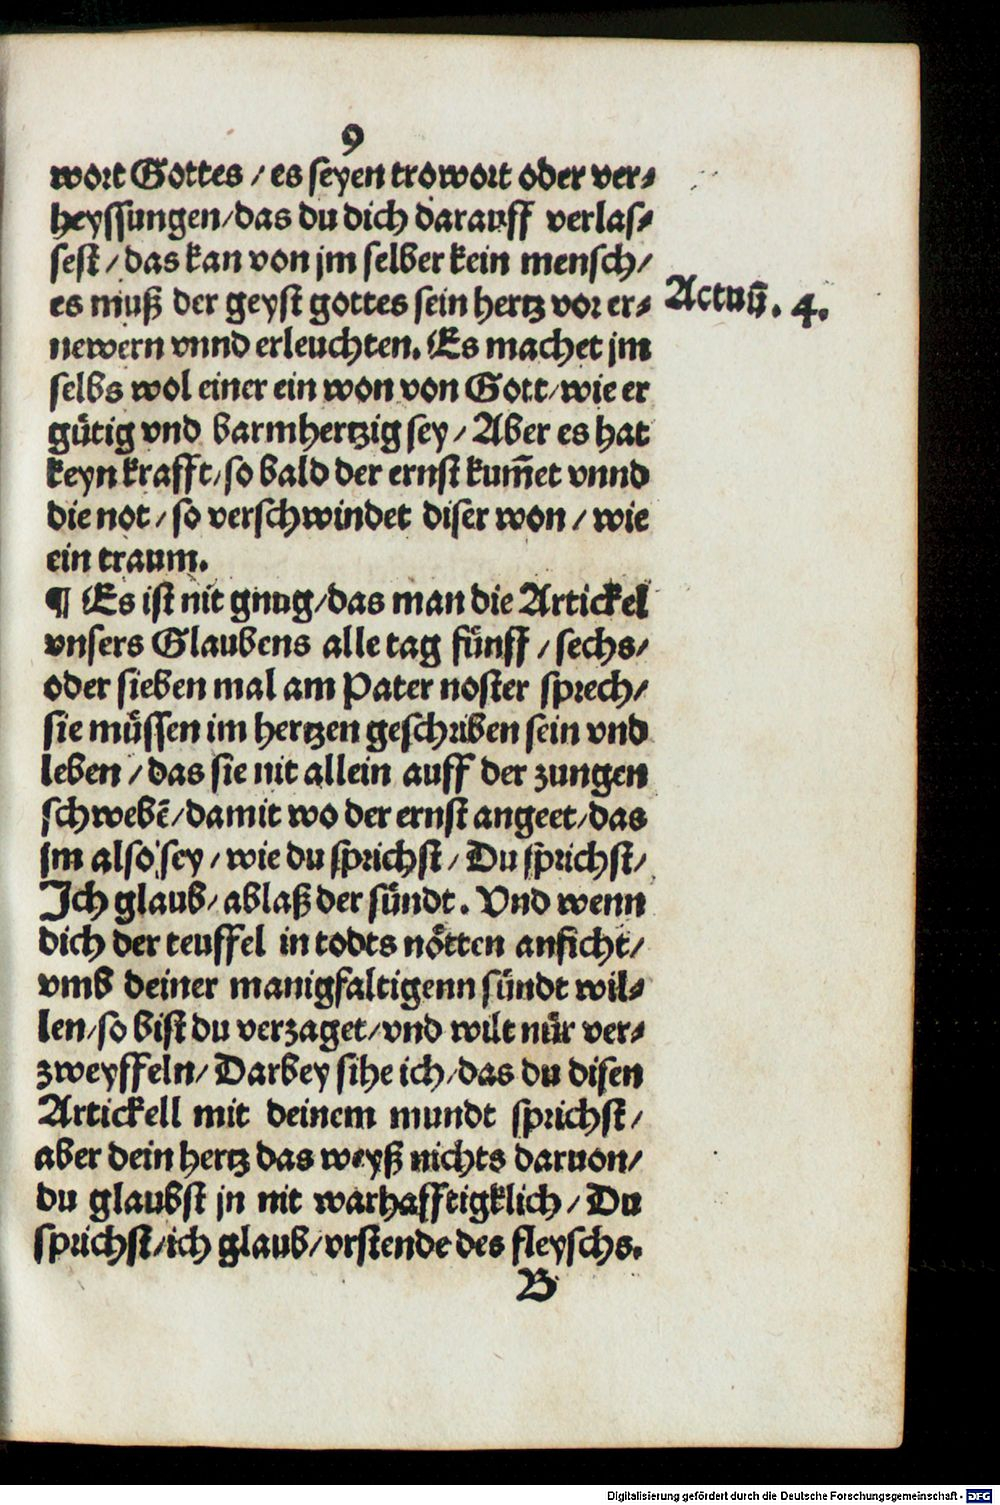 9
wort Gottes / es seyen trowort oder ver⸗
heyssungen / das du dich darauff verlas⸗
sest / das kan von jm selber kein mensch /
es muß der geyst gottes sein hertz vor er⸗
Actuū. 4.
newern vnnd erleuchten. Es machet jm
selbs wol einer ein won von Gott / wie er
gütig vnd barmhertzig sey / Aber es hat
keyn krafft / so bald der ernst kum̄et vnnd
die not / so verschwindet diser won / wie
ein traum.
¶ Es ist nit gnug / das man die Artickel
vnsers Glaubens alle tag fünff / sechs /
oder sieben mal am Pater noster sprech /
sie müssen im hertzen geschriben sein vnd
leben / das sie nit allein auff der zungen
schwebē / damit wo der ernst angeet / das
jm also sey / wie du sprichst / Du sprichst /
Ich glaub / ablaß der sündt. Vnd wenn
dich der teuffel in todts nötten anficht /
vmb deiner manigfaltigenn sündt wil⸗
len / so bist du verzaget / vnd wilt nür ver⸗
zweyffeln / Darbey sihe ich / das du disen
Artickell mit deinem mundt sprichst /
aber dein hertz das weyß nichts daruon /
du glaubst jn nit warhafftigklich / Du
sprichst / ich glaub / vrstende des fleyschs.
B
Digitalisierung gefördert durch die Deutsche Forschungsgemeinschaft - DFG